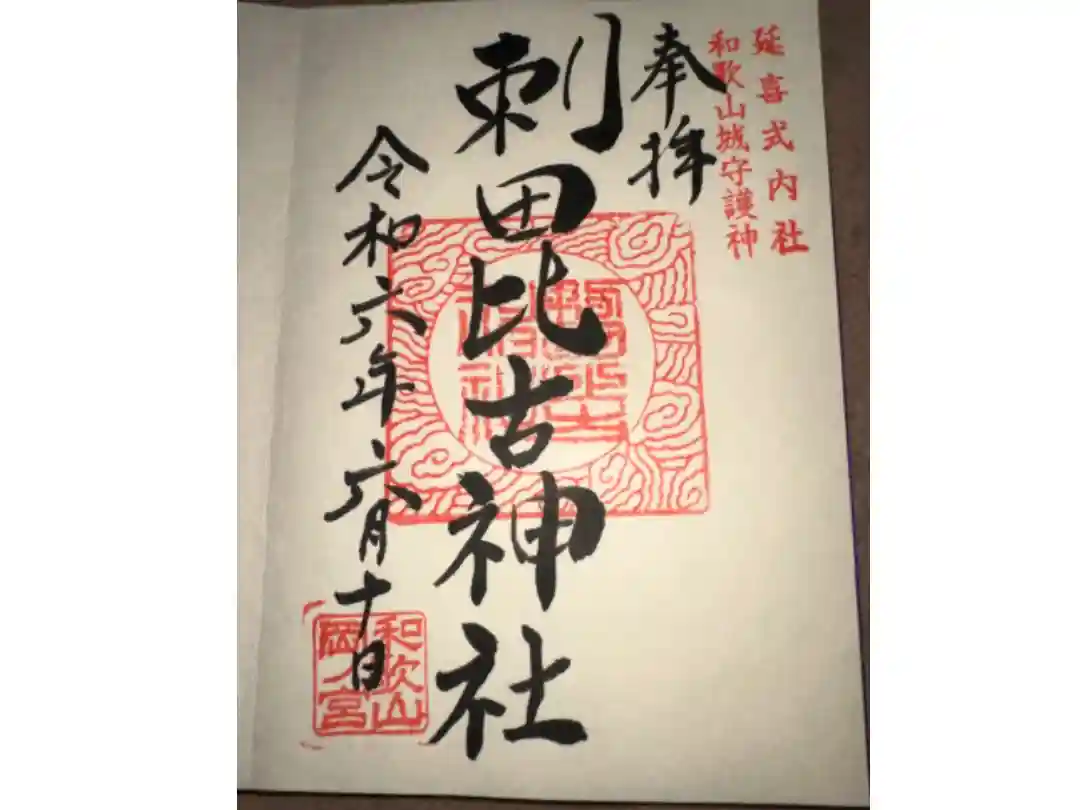 延喜式内社
和歌山城守護神
奉拝
刺田比古神社
令和六年六月十日
和歌山
岡ノ宮